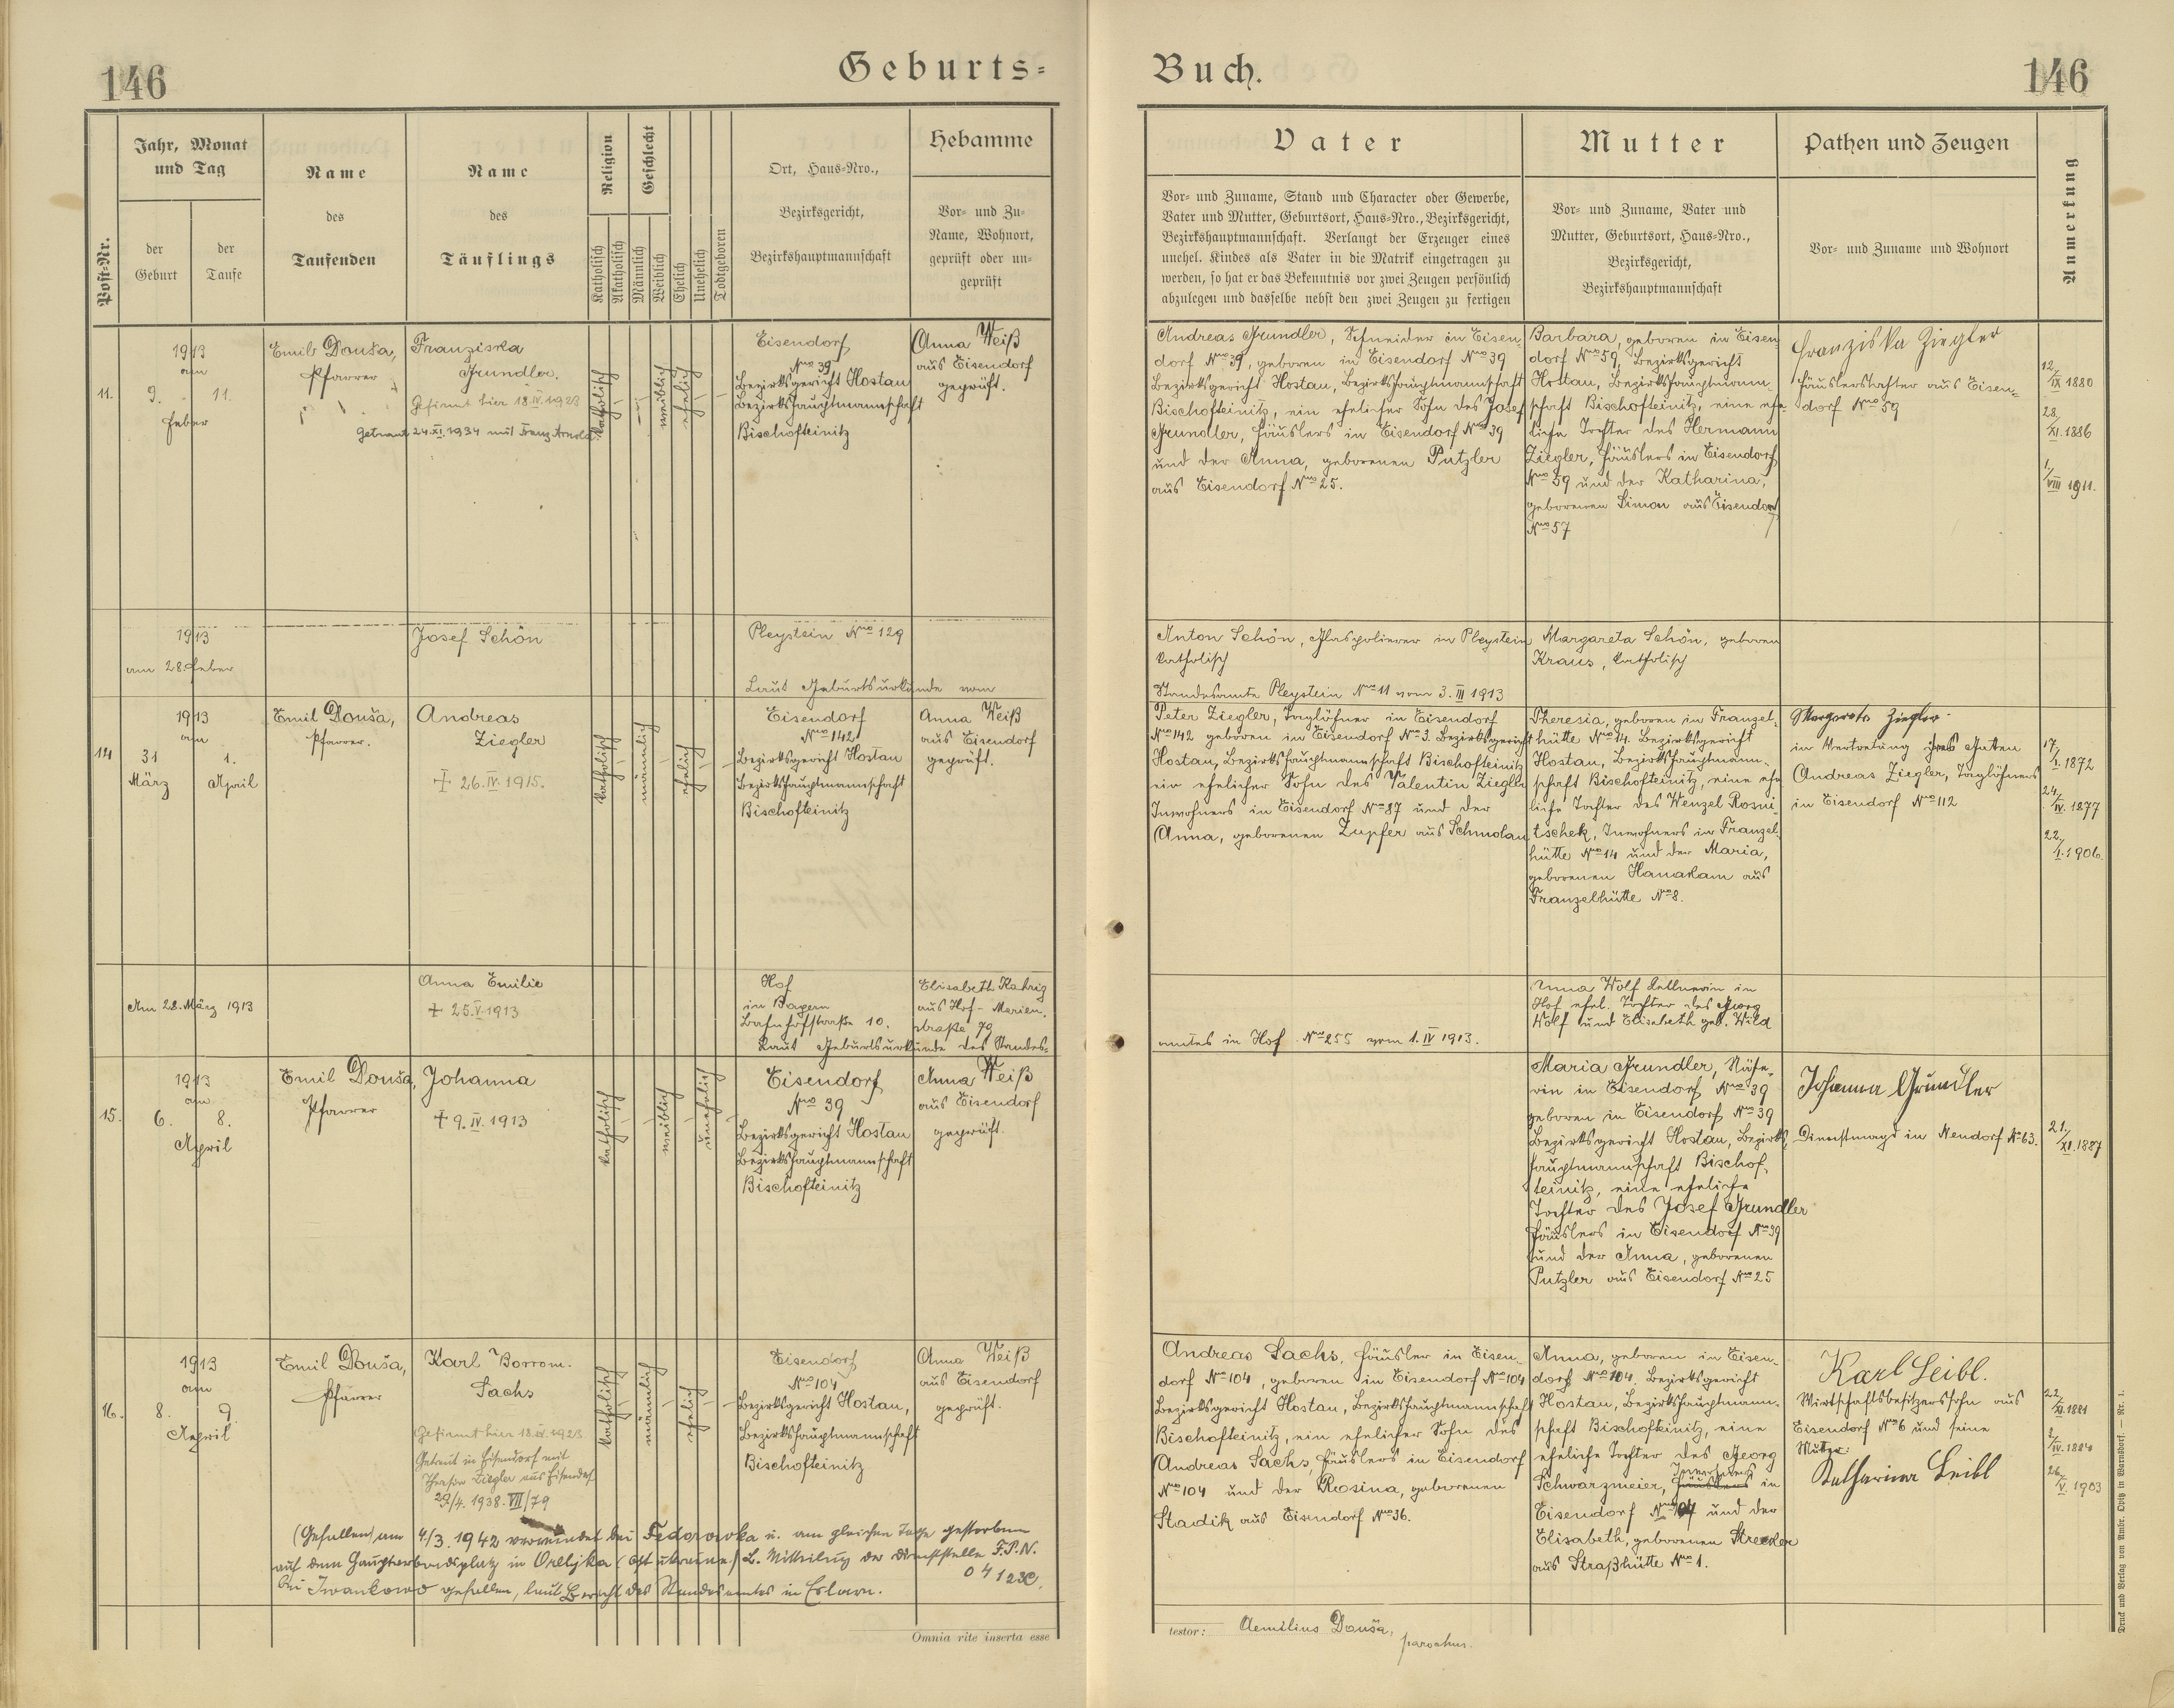 146
Geburts=
Buch.
146
Post-Nr.
Jahr, Monat
und Tag
der
Geburt
der
Taufe
Name
des
Taufenden
Name
des
Täuflings
Religion
Katholisch
Akatholisch
Geschlecht
Männlich
Weiblich
Ehelich
Unehelich
Todtgeboren
Ort, Haus=Nro.,
Bezirksgericht,
Bezirkshauptmannschaft
Hebamme
Vor= und Zu=
Name, Wohnort,
geprüft oder un=
geprüft
Vater
Vor= und Zuname, Stand und Character oder Gewerbe,
Vater und Mutter, Geburtsort, Haus=Nro., Bezirksgericht,
Bezirkshauptmannschaft. Verlangt der Erzeuger eines
unehel. Kindes als Vater in die Matrik eingetragen zu
werden, so hat er das Bekenntnis vor zwei Zeugen persönlich
abzulegen und dasselbe nebst den zwei Zeugen zu fertigen
Mutter
Vor= und Zuname, Vater und
Mutter, Geburtsort, Haus=Nro.,
Bezirksgericht,
Bezirkshauptmannschaft
Pathen und Zeugen
Vor= und Zuname und Wohnort
Anmerkung
11.
1913
am
9. 11.
Feber
Emil Douša,
Pfarrer
Franziska
Grundler.
Gefirmt hier 18.IV.1923
Getraut 24.XI.1934 mit Franz Arnold
katholisch
weiblich
ehelich
Eisendorf
Nro 39
Bezirksgericht Hostau
Bezirkshauptmannschaft
Bischofteinitz
Anna Weiß
aus Eisendorf
geprüft.
Andreas Grundler, Schneider in Eisen-
dorf Nro 39, geboren in Eisendorf Nro 39
Bezirksgericht Hostau, Bezirkshauptmannschaft
Bischofteinitz, ein ehelicher Sohn des Josef
Grundler, Häuslers in Eisendorf Nro 39
und der Anna, geborenen Putzler
aus Eisendorf Nro 25.
Barbara, geboren in Eisen-
dorf Nro 59, Bezirksgericht
Hostau, Bezirkshauptmann-
schaft Bischofteinitz, eine ehe-
liche Tochter des Hermann
Ziegler, Häuslers in Eisendorf
Nro 59 und der Katharina,
geborenen Simon aus Eisendorf
Nro 57
Franziska Ziegler
Häuslerstochter aus Eisen-
dorf Nro 59
12./IX 1880
28./XI. 1886
1/VIII 1911.
1913
am 28. Feber
Josef Schön
Pleystein Nro 129
Laut Geburtsurkunde vom
Anton Schön, Glaspolierer in Pleystein
katholisch
Standesamte Pleystein Nro 11 vom 3. III 1913
Margareta Schön, geboren
Kraus, katholisch
14
1913
am
31 1.
März April
Emil Douša,
Pfarrer.
Andreas
Ziegler
+ 26.IV.1915.
katholisch
männlich
ehelich
Eisendorf
Nro 142
Bezirksgericht Hostau
Bezirkshauptmannschaft
Bischofteinitz
Anna Weiß
aus Eisendorf
geprüft.
Peter Ziegler, Taglöhner in Eisendorf
Nro 142 geboren in Eisendorf Nro 3. Bezirksgericht
Hostau, Bezirkshauptmannschaft Bischofteinitz
ein ehelicher Sohn des Valentin Ziegler
Inwohners in Eisendorf Nro 87 und der
Anna, geborenen Zupfer aus Schmolau
Theresia, geboren in Franzel-
hütte Nro 14. Bezirksgericht
Hostau, Bezirkshauptmann-
schaft Bischofteinitz, eine ehe-
liche Tochter des Wenzel Rosni-
tschek, Inwohners in Franzel-
hütte Nro 14 und der Maria,
geborenen Hanakam aus
Franzelhütte Nro 8.
Margareta Ziegler
in Vertretung ihres Gatten
Andreas Ziegler, Taglöhners
in Eisendorf Nro 112
17./I. 1872
24./IV. 1877
22./I. 1906.
Am 28. März 1913
Anna Emilie
+ 25.V.1913
Hof
in Bayern
Bahnhofstraße 10.
Laut Geburtsurkunde des Standes-
Elisabeth Kahrig
aus Hof - Marien-
straße 79
amtes in Hof Nro 255 vom 1. IV 1913.
Anna Wolf Kellnerin in
Hof ehel. Tochter des Georg
Wolf und Elisabeth geb. Wild
15.
1913
am
6. 8.
April
Emil Douša,
Pfarrer
Johanna
+ 9.IV.1913
katholisch
weiblich
unehelich
Eisendorf
Nro 39
Bezirksgericht Hostau
Bezirkshauptmannschaft
Bischofteinitz
Anna Weiß
aus Eisendorf
geprüft.
Maria Grundler, Nähe-
rin in Eisendorf Nro 39
geboren in Eisendorf Nro 39
Bezirksgericht Hostau, Bezirks-
hauptmannschaft Bischof-
teinitz, eine eheliche
Tochter des Josef Grundler
Häuslers in Eisendorf Nro 39
und der Anna, geborenen
Putzler aus Eisendorf Nro 25
Johanna Grundler
Dienstmagd in Neudorf Nro 63.
21./XI. 1887
16.
1913
am
8. 9.
April
Emil Douša,
Pfarrer
Karl Borrom.
Sachs
Gefirmt hier 18.IV.1923
Getraut in Eisendorf mit
Theresia Ziegler aus Eisendorf
29/4. 1938. VII/79
katholisch
männlich
ehelich
Eisendorf
Nro 104
Bezirksgericht Hostau,
Bezirkshauptmannschaft
Bischofteinitz
Anna Weiß
aus Eisendorf
geprüft.
Andreas Sachs, Häusler in Eisen-
dorf Nro 104, geboren in Eisendorf Nro 104
Bezirksgericht Hostau, Bezirkshauptmannschaft
Bischofteinitz, ein ehelicher Sohn des
Andreas Sachs, Häuslers in Eisendorf
Nro 104 und der Rosina, geborenen
Stadik aus Eisendorf Nro 36.
Anna, geboren in Eisen-
dorf Nro 104. Bezirksgericht
Hostau, Bezirkshauptmann-
schaft Bischofteinitz, eine
eheliche Tochter des Georg
Schwarzmeier, Häuslers Inwohners in
Eisendorf Nro 104 und der
Elisabeth, geborenen Strecker
aus Straßhütte Nro 1.
Karl Leibl.
Wirtschaftsbesitzerssohn aus
Eisendorf Nro 6 und seine
Mutter:
Katharina Leibl
1903
(Gefallen) am 4/3. 1942 verwundet bei Fedorowka u. am gleichen Tage gestorben
auf dem Hauptverbandsplatz in Oreljka (Ost ukraine) L. Mitteilung der Dienststelle F.P.N.
04123C.
bei Iwankowo gefallen, laut Bericht des Standesamtes in Eslarn.
Omnia rite inserta esse
testor: Aemilius Douša,
parochus.
Druck und Verlag von Ambr. Opitz in Warnsdorf. — Nr. 1.